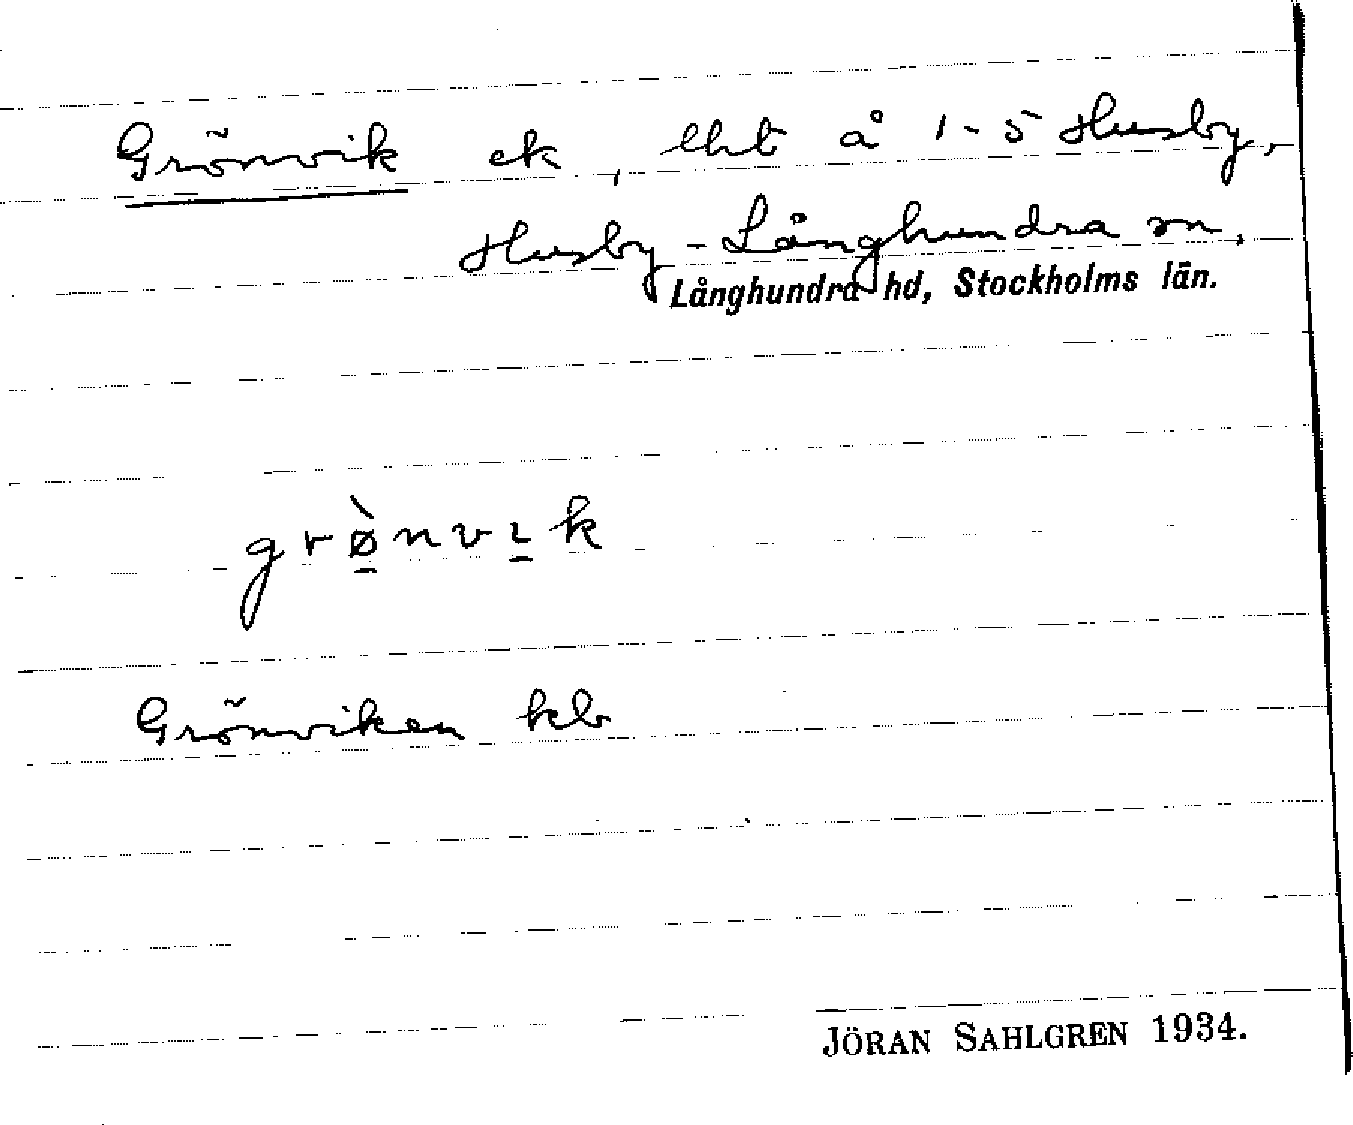 Grönvik ek, lht å 1-5 Husby,
Husby-Långhundra sn,
Långhundra hd, Stockholms län.
grø̠̀nvı̠k
Grönviken kb
JÖRAN SAHLGREN 1934.